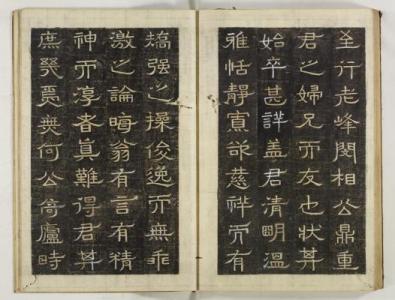 至行老峰閔相公鼎重
君之婦兄而友也狀其
始卒甚詳盖君清明溫
雅恬靜寡欲慈祥而有
矯强之操俊逸而無乖
激之論晦翁有言有精
神而淳者眞難得君其
庶幾焉無何公倚廬時